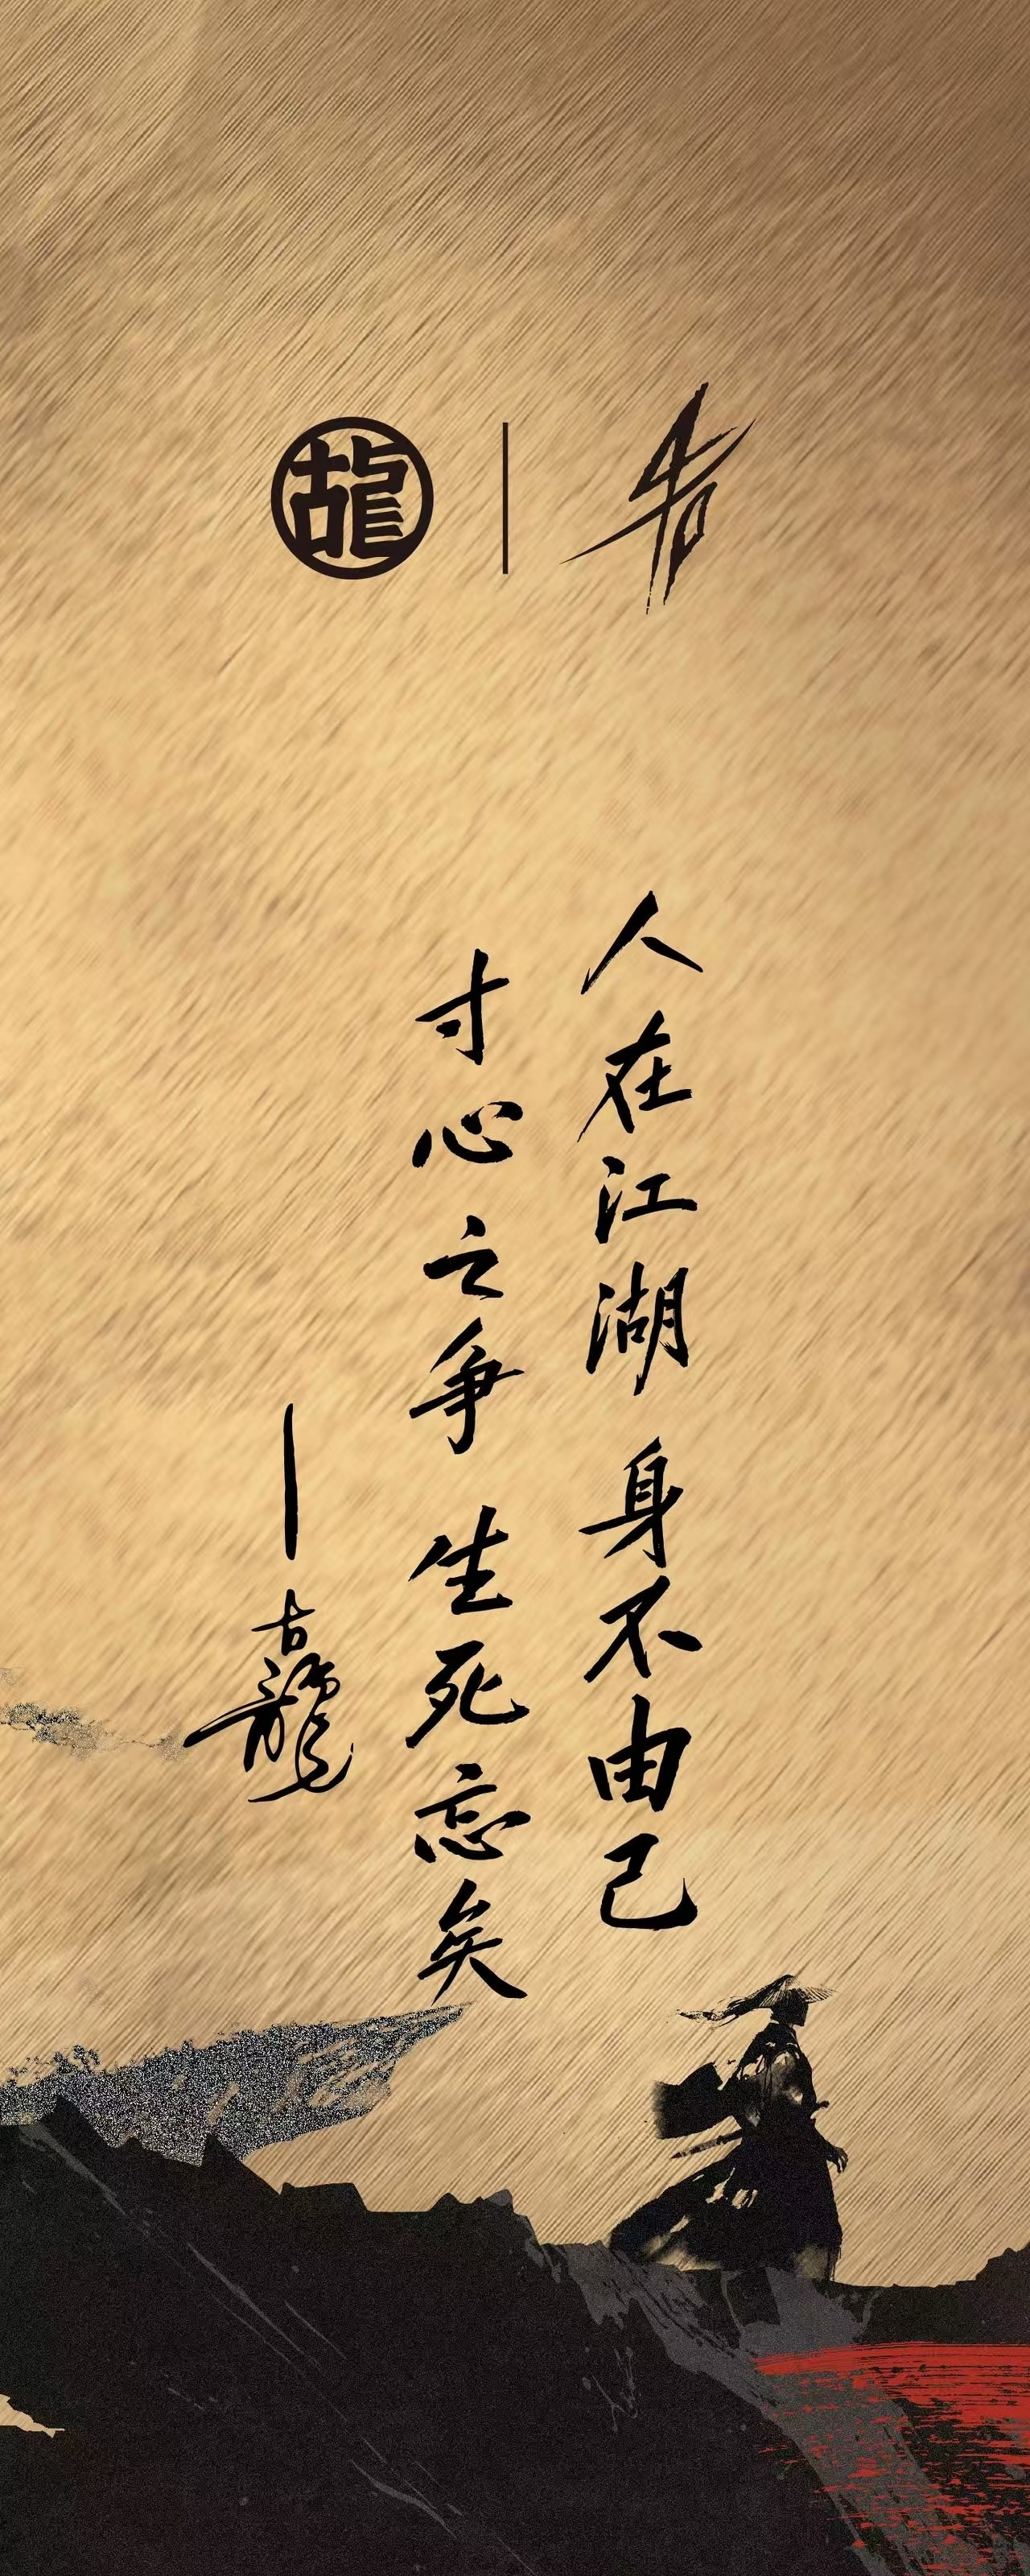 人在江湖 身不由己
寸心之争 生死忘矣
—古龍